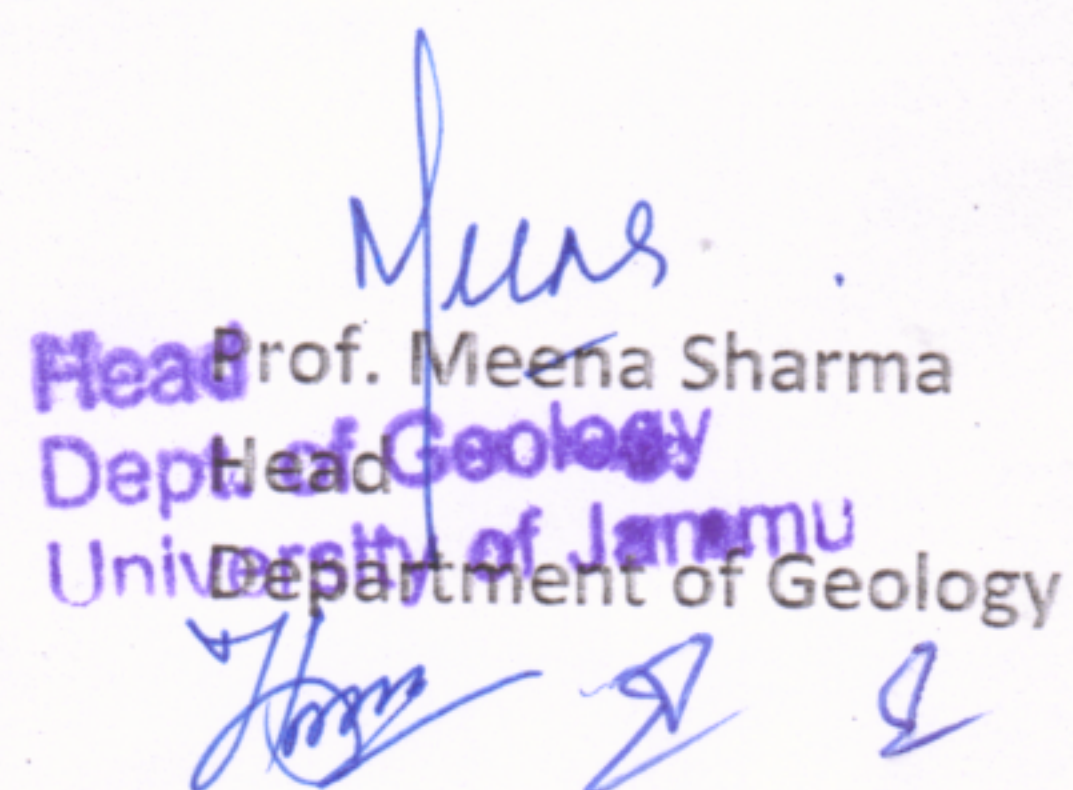 Meena
Prof. Meena Sharma
Head
Department of Geology
Head
Dept. of Geology
University of Jammu